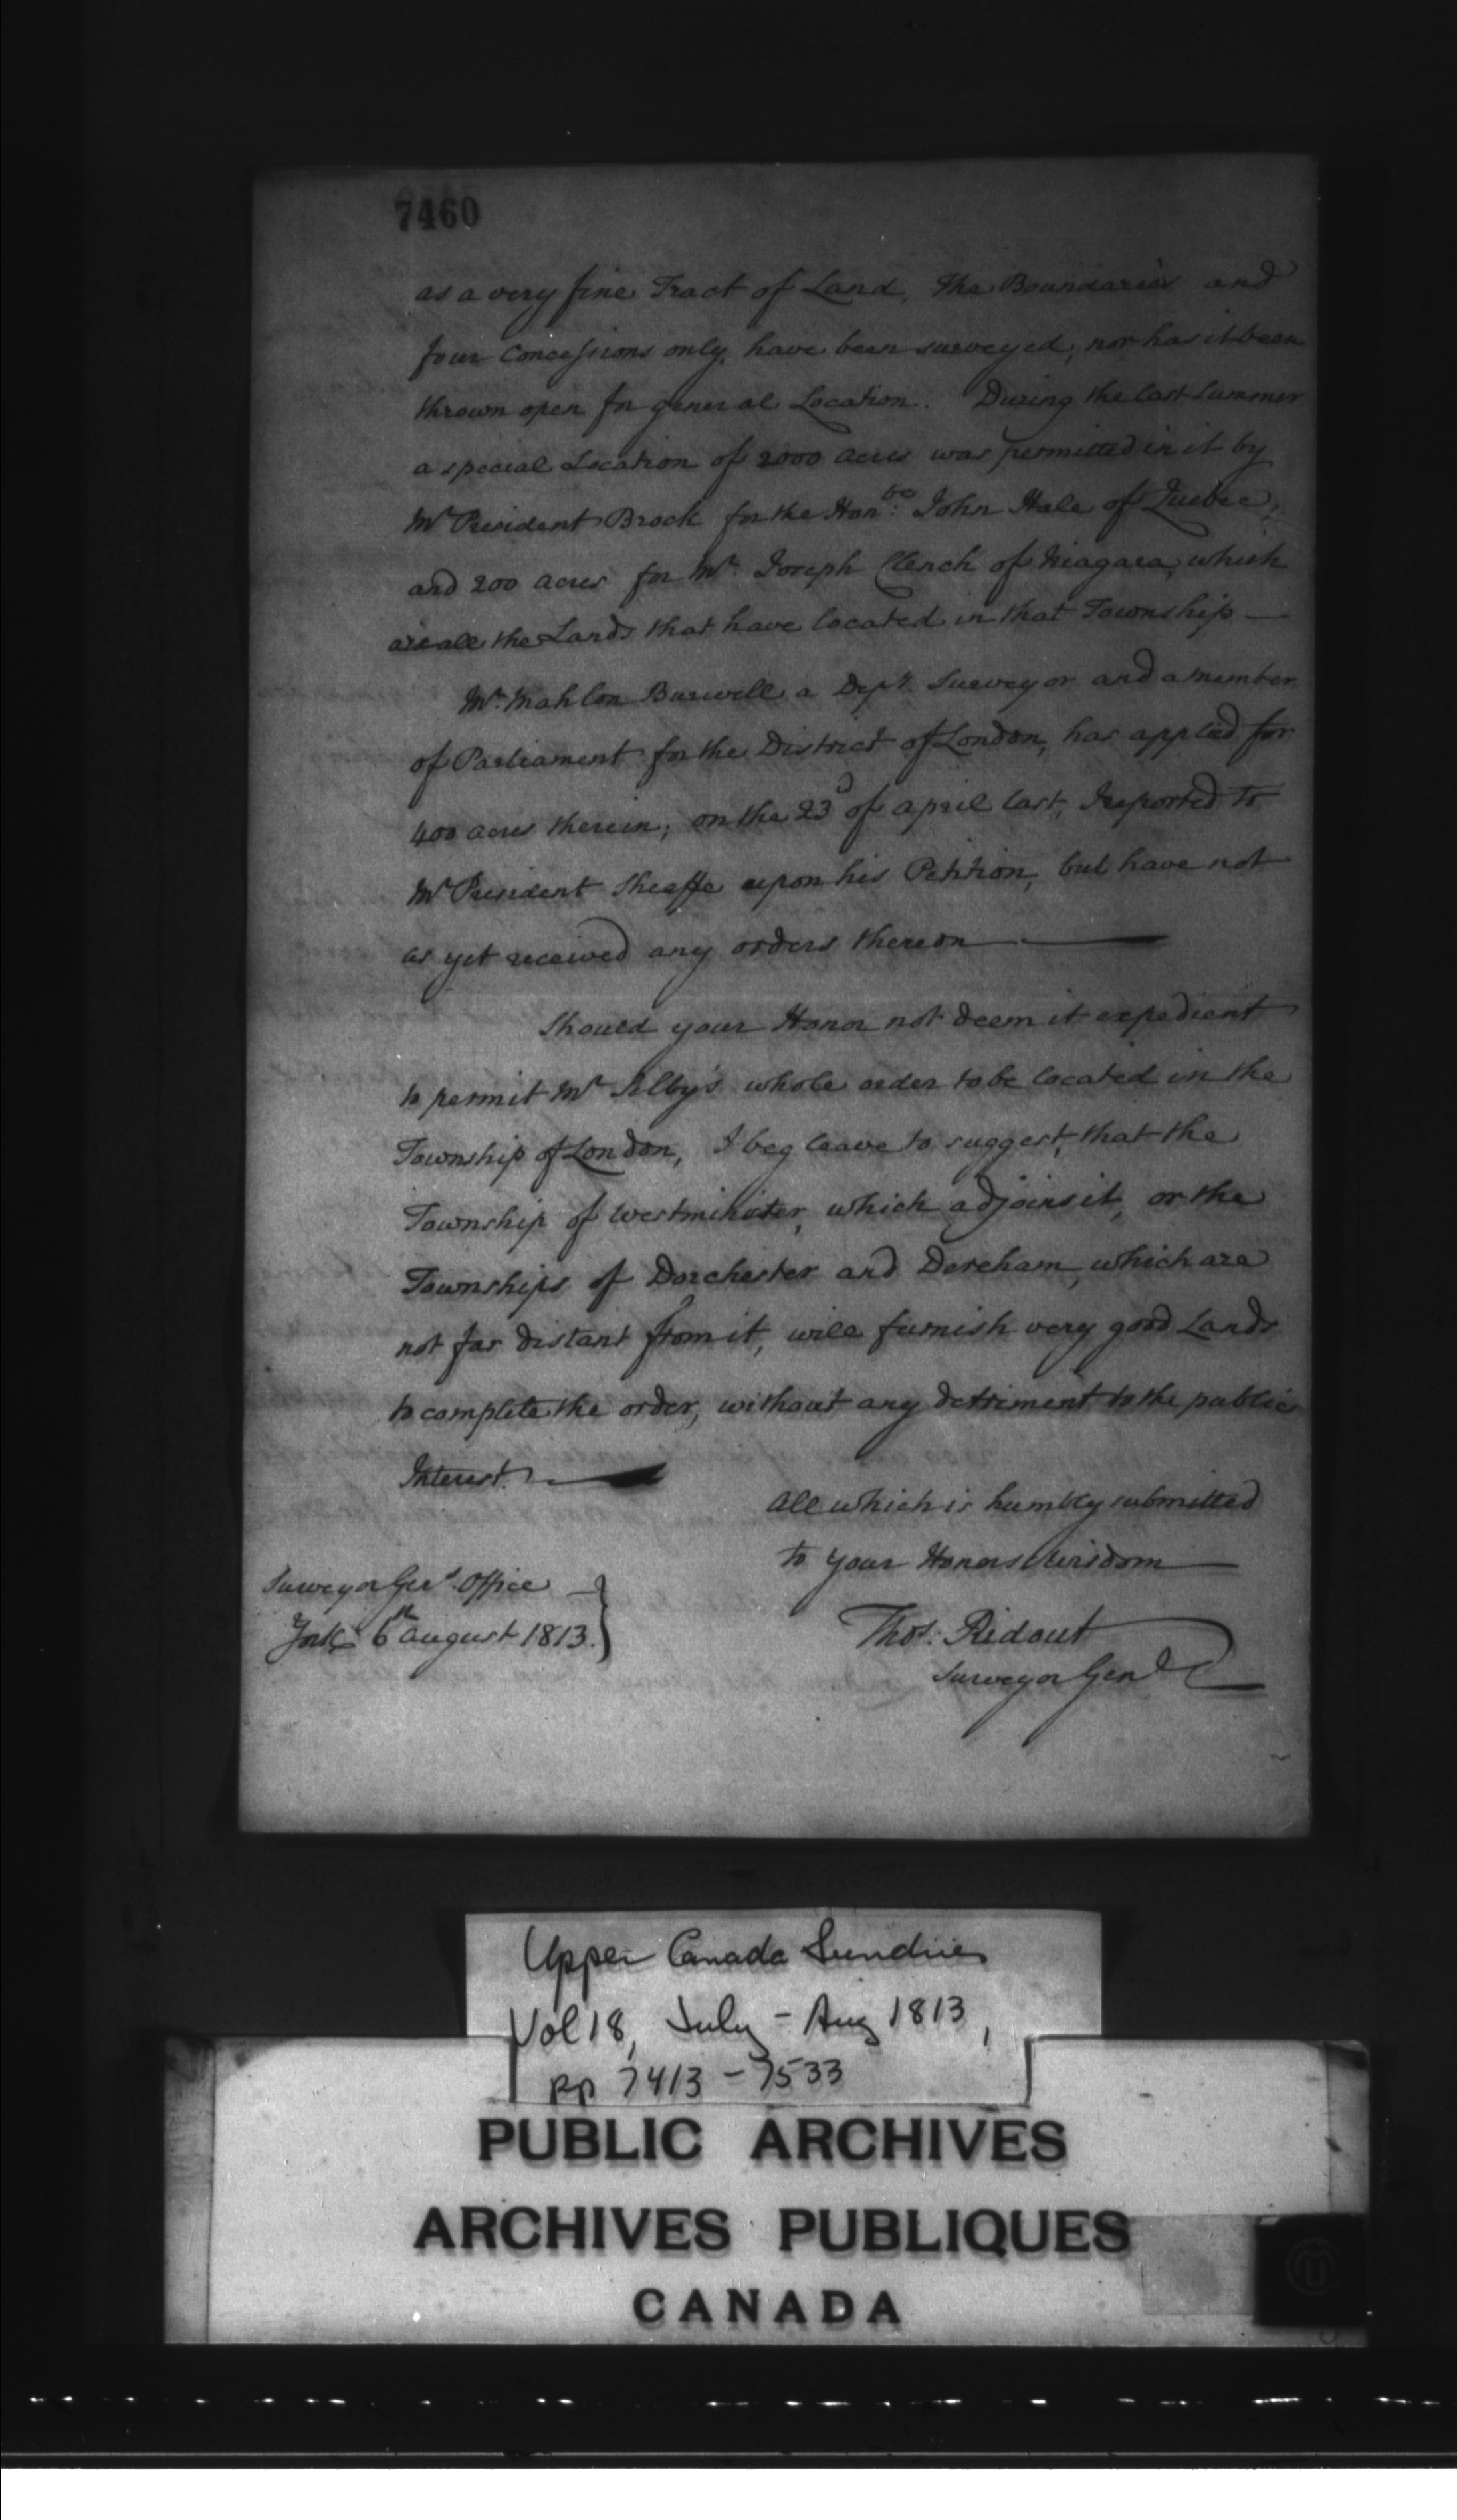 7460
as a very fine Tract of Land, the Boundaries and
four Concessions only, have been surveyed, nor has it been
thrown open for general Location. During the last Summer
a special Location of 2000 acres was permitted in it by
Mr President Brock for the Honble: John Hale of Quebec,
and 200 acres for Mr. Joseph Clench of Niagara, which
are all the Lands that have located in that Township —
Mr. Mahlon Burwell a Depy. Surveyor and a member
of Parliament for the District of London, has applied for
400 acres therein; on the 23d of April last, I reported to
Mr President Sheaffe upon his Petition, but have not
as yet received any orders thereon —
Should your Honor not deem it expedient
to permit Mr Selby's whole order to be located in the
Township of London, I beg leave to suggest, that the
Township of Westminster, which adjoins it, or the
Townships of Dorchester and Dereham, which are
not far distant from it, will furnish very good Lands
to complete the order, without any detriment to the public
Interest. —
All which is humbly submitted
to your Honors Wisdom —
Surveyor Genl. Office —
York 6th August 1813.
Thos. Ridout
Surveyor Genl
Upper Canada Sundries
Vol 18, July - Aug 1813,
pp 7413 - 7533
PUBLIC ARCHIVES
ARCHIVES PUBLIQUES
CANADA